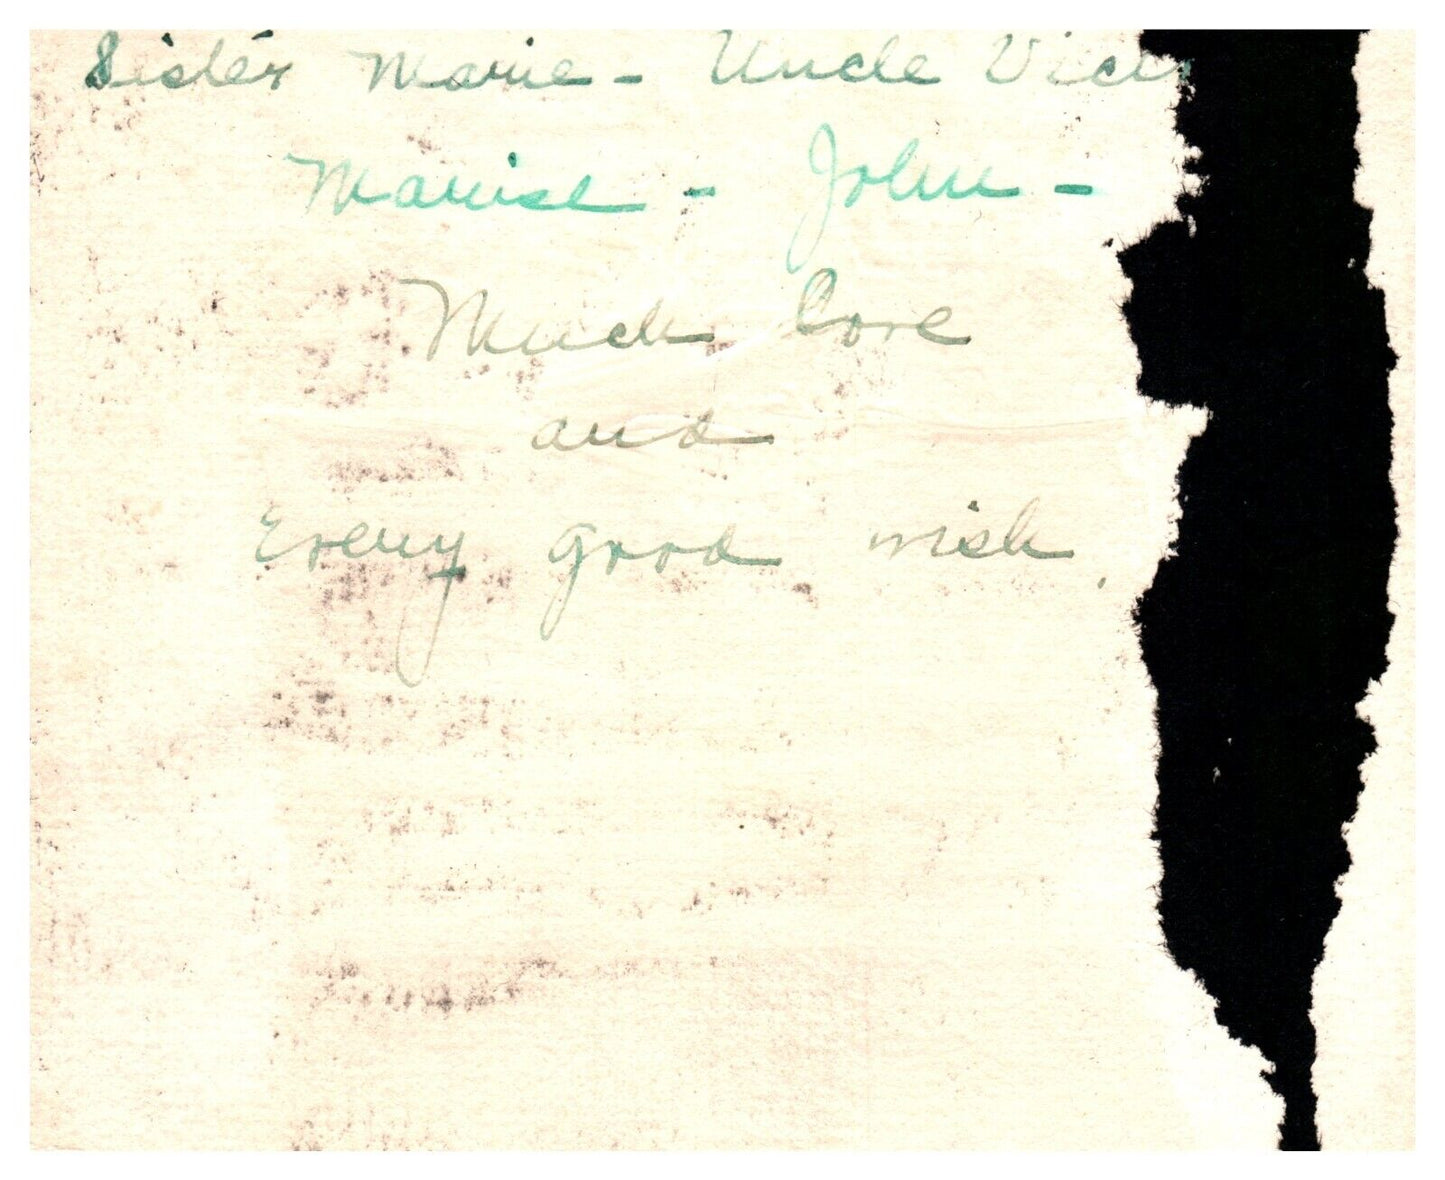 Sister Marie - Uncle
Marise - John -
Much love
and
Every good wish.